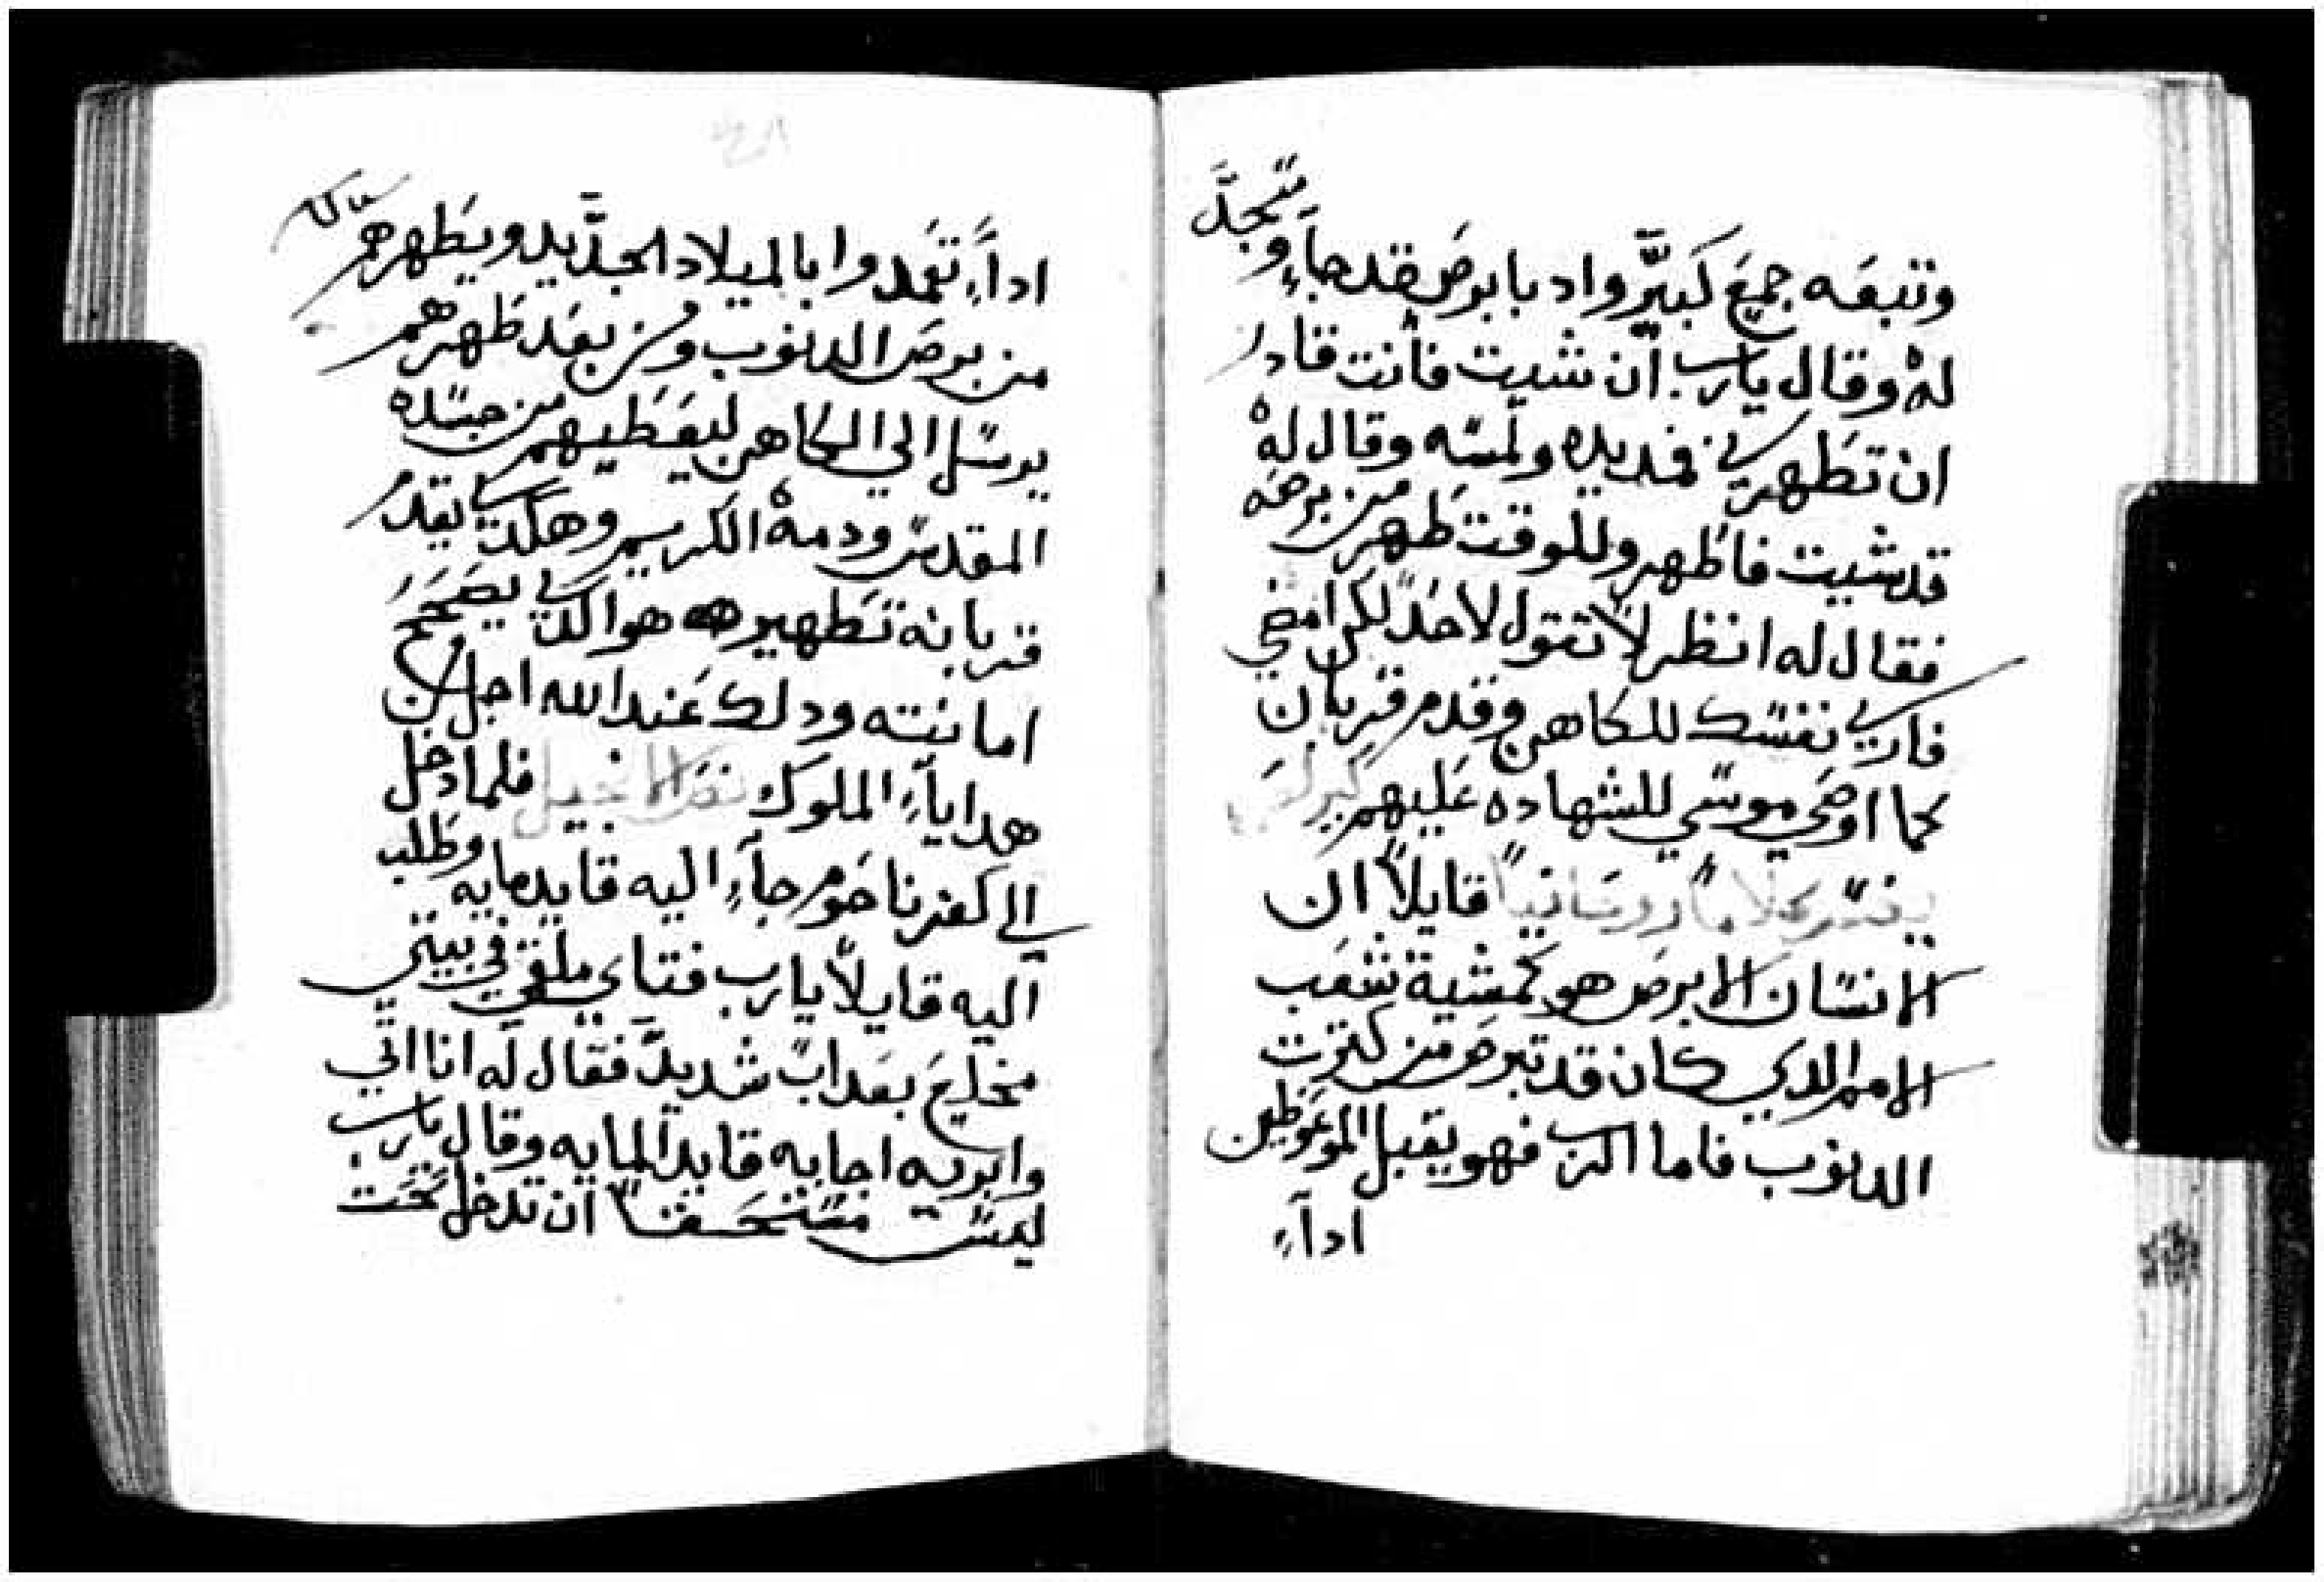 وتبعَه جمعَ كبيرّ واد بابرص قد جآءِ وسجدَ
لهُ وقال يارب ان شيت فانت قادر
ان تطهرني فمد يده ولمسه وقال لهُ
قد شيت فاطهر وللوقت طهر من برصه
فقال له انظر لا تقول لاحدً لكن امضي
فاري نفسك للكاهن وقدم قربان
كما اوصي موسي للشهاده عَليهم كيرلص
يفسر كلاماً روحانياً قايلاً ان
الانسان الابرص هو كمشية شعَب
الامم الدي كان قد تبرص من كترت
الدنوب فاما الرب فهو يقبل الموعوظين
ادآءِ
ادآءِ تعمدوا بالميلاد الجدّيد ويطهرهم
من برص الدنوب ومن بعَد طهرهم
يرسل الي الكاهن ليعَطيهم من جسده
المقدس ودمهُ الكريم وهكدي يقدم
قربانه تطهيره هو الدي يصَحح
امانته ودلك عَند الله اجل من
هدايآءِ الملوك نص الانجيل فلما دخل
الي كفرناحوم جآءِ اليه قايد مايه وطلب
اليه قايلاً يارب فتاي ملقي في بيتي
مخلع بعَداب شديد فقال له انا اتي
وابريه اجابه قايد المايه وقال يارب
لست مستحقاً ان تدخل تحَت